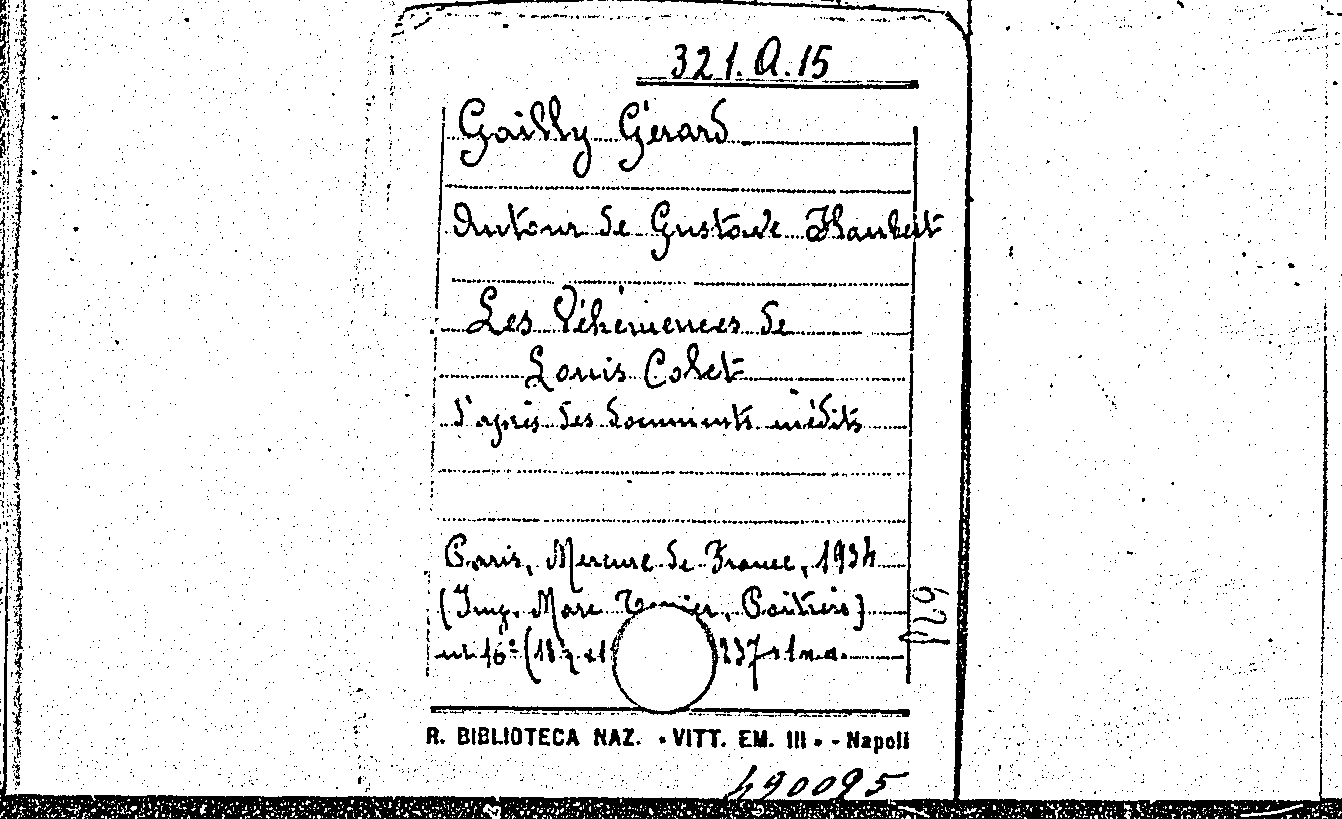 321.A.15
Gailly Gérard
Autour de Gustave Flaubert
Les Véhémences de
Louis Colet
d'après des documents inédits
Paris, Mercure de France, 1934
(Imp. Marc Poitiers)
in 16º 237
R. BIBLIOTECA NAZ. • VITT. EM. III • - Napoli
490095